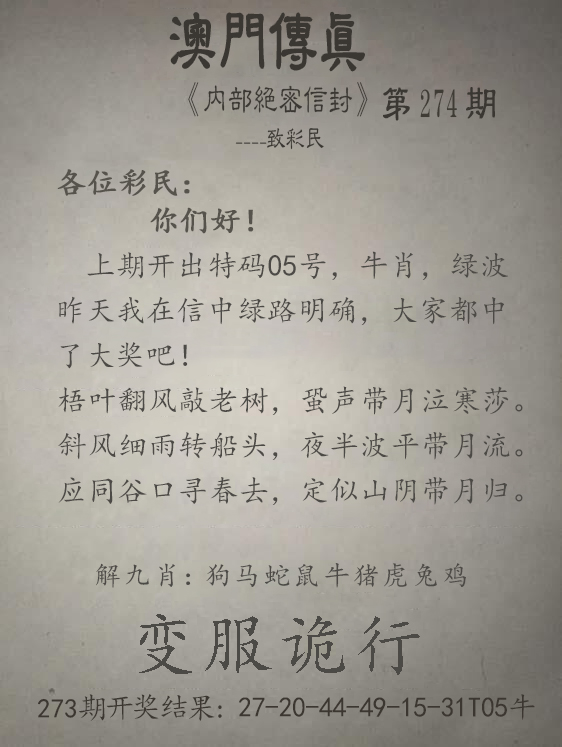 澳門傳眞
《内部絕密信封》第274期
----致彩民
各位彩民：
你们好！
上期开出特码05号，牛肖，绿波
昨天我在信中绿路明确，大家都中
了大奖吧！
梧叶翻风敲老树，蛩声带月泣寒莎。
斜风细雨转船头，夜半波平带月流。
应同谷口寻春去，定似山阴带月归。
解九肖：狗马蛇鼠牛猪虎兔鸡
变服诡行
273期开奖结果：27-20-44-49-15-31T05牛